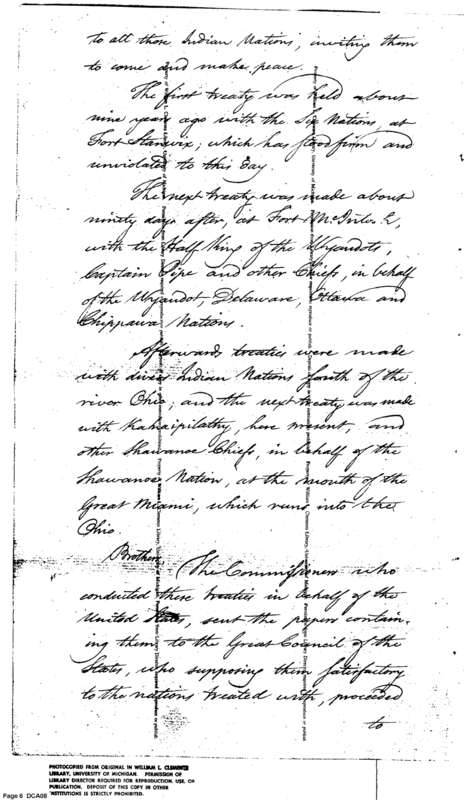 to all those Indian Nations, inviting them
to come and make peace.
The first treaty was held about
nine years ago with the Six Nations, at
Fort Stanwix; which has stood firm and
unviolated to this day.
The next treaty was made about
ninety days after, at Fort McIntosh,
with the Half King of the Wyandots,
Captain Pipe and other Chiefs, in behalf
of the Wyandot, Delaware, Ottawa and
Chippawa Nations.
Afterwards treaties were made
with divers Indian Nations south of the
river Ohio; and the next treaty was made
with Kakaipilathy, here present, and
other Shawanoe Chiefs, in behalf of the
Shawanoe Nation, at the mouth of the
Great Miami, which runs into the
Ohio.
Brothers, The Commissioners who
conducted these treaties in behalf of the
United States, sent the papers contain-
ing them to the Great Council of the
States, who supposing them satisfactory
to the nations treated with, proceeded
to
PHOTOCOPIED FROM ORIGINAL IN WILLIAM L. CLEMENTS
LIBRARY, UNIVERSITY OF MICHIGAN. PERMISSION OF
LIBRARY DIRECTOR REQUIRED FOR REPRODUCTION, USE, OR
PUBLICATION. DEPOSIT OF THIS COPY IN OTHER
INSTITUTIONS IS STRICTLY PROHIBITED.
Page 6 DCA08